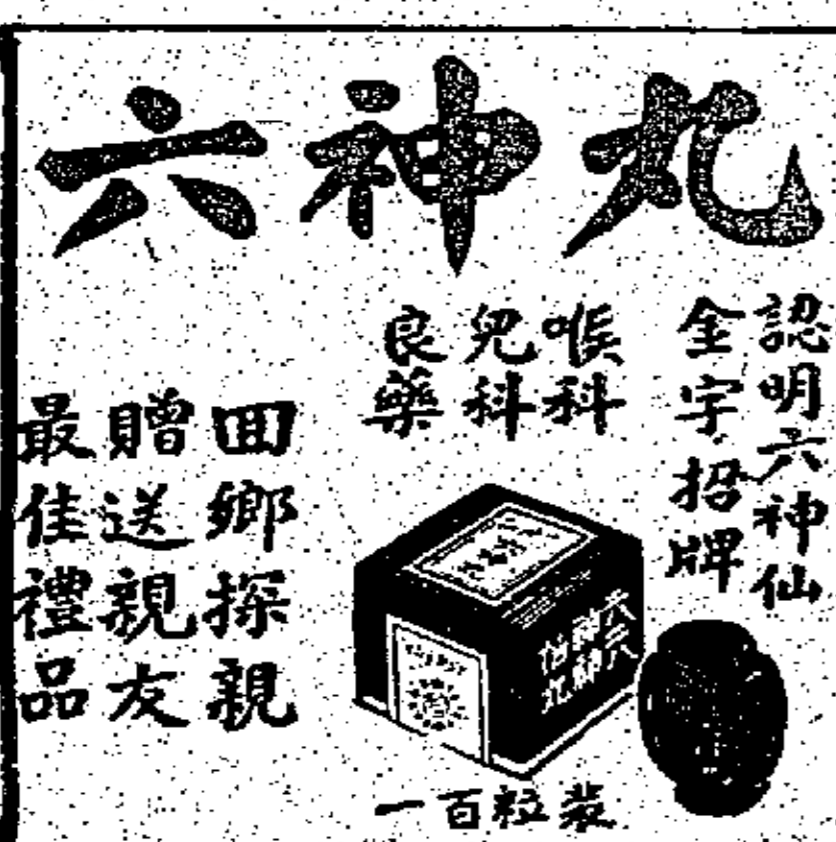 六神丸
認明六神仙
金字招牌
喉科
兒科
良藥
回鄉探親
贈送親友
最佳禮品
一百粒裝